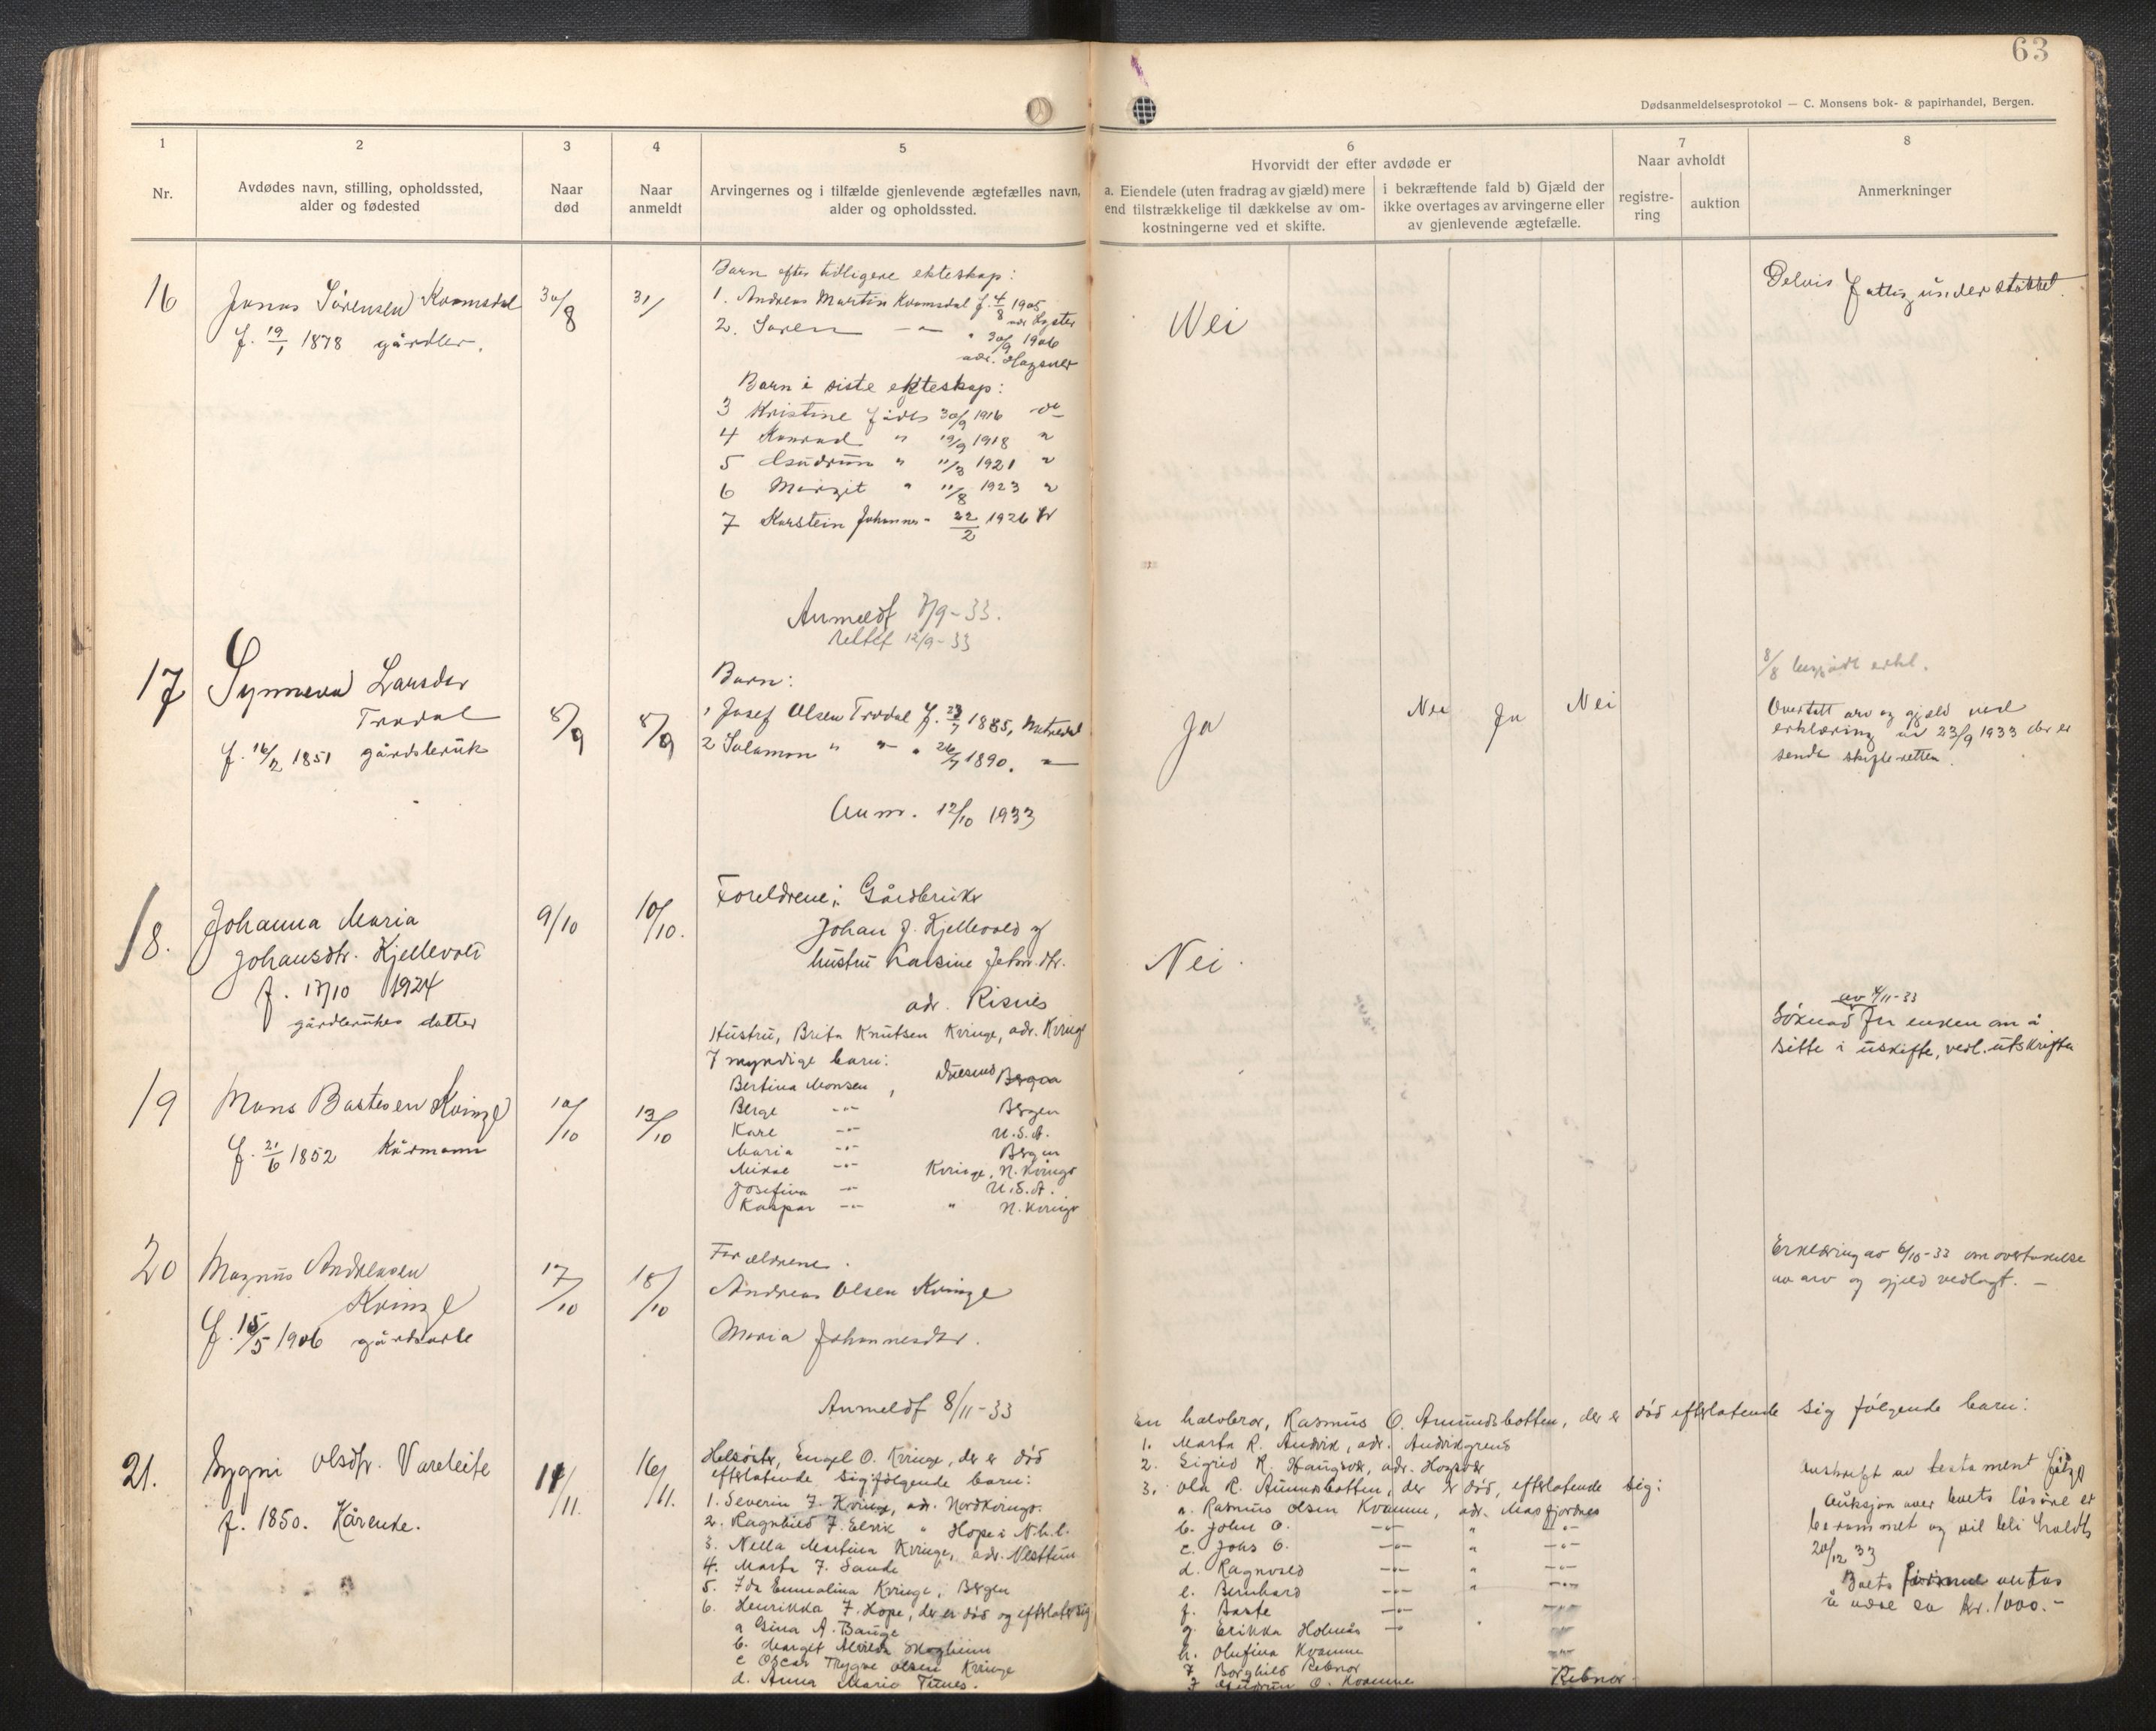 63
Dødsanmeldelsesprotokol — C. Monsens bok- & papirhandel, Bergen.
1
Nr.
2
Avdødes navn, stilling, opholdssted,
alder og fødested
3
Naar
død
4
Naar
anmeldt
5
Arvingernes og i tilfælde gjenlevende ægtefælles navn,
alder og opholdssted.
6
Hvorvidt der efter avdøde er
a. Eiendele (uten fradrag av gjæld) mere
end tilstrækkelige til dækkelse av om-
kostningerne ved et skifte.
i bekræftende fald b) Gjæld der
ikke overtages av arvingerne eller
av gjenlevende ægtefælle.
7
Naar avholdt
registre-
ring
auktion
8
Anmerkninger
16
Jonas Sörensen Kvamsdal
f. 19/1 1878 gårdbr.
30/8
31/
Barn efter tidligere ekteskap:
1. Andreas Martin Kvamsdal f. 4/8 1905
adr Lyster
2. Sören —"— " 30/9 1906
adr.
Barn i siste ekteskap:
3 Kristine född 30/9 1916
4 Konrad " 19/9 1918 "
5 Gudrun " 11/3 1921 "
6 Margit " 11/8 1923 "
7 Karstein Johannes " 22/2 1926
Nei
Delvis fattigunderstöttet.
Anmeldt 7/9-33.
rettet 12/9-33
17
Synneva Larsdtr
Tradal
f. 16/12 1851 gårdbruk
5/9
8/9
Barn:
1 Josef Olsen Tradal f. 23/7 1885, Matredal
2 Salamon " " " 26/7 1890. "
Ja
Nei
Ja
Nei
8/8 erkl.
Overtatt arv og gjæld ved
erklæring av 23/9 1933 der er
sendt skifteretten.
Anm. 12/10 1933
18.
Johanna Maria
Johansdtr. Kjellevold
f. 17/10 1924
gårdbrukes datter
9/10
10/10.
Foreldrene: Gårdbruker
Johan J. Kjellevold og
hustru Karsine Johs.dtr.
adr. Risnes
Nei.
19
Mons Bastesen Kvinge
f. 21/6 1852 Kårmann
10/10
13/10
Hustru, Brita Knutsen Kvinge, adr. Kvinge
7 myndige barn:
Bertina Monsen, Bergen
Berge —"— Bergen
Kare —"— U.S.A.
Maria —"— Bergen
Mikal —"— Kvinge, N. Kvinge
Josefina —"— U.S.A.
Kaspar —"— " N. Kvinge
av 4/11-33
Söknad fra enken om å
sitte i uskifte, vedl. utskriften
20
Magnus Andreasen
Kvinge
f. 15/5 1906 gårdsarb
17/10
18/10
Forældrene.
Andreas Olsen Kvinge
Maria Johannesdtr.
Erklæring av 6/10-33 om overtakelse
av arv og gjeld vedlagt. —
Anmeldt 8/11-33
21.
Sygni Olsdtr. Vareleite
f. 1850. Kårenke.
11/11.
16/11.
Helsöster, Engel O. Kvinge, der er död
efterlatende sig fölgende barn:
1. Severin F. Kvinge, adr. Nordkvinge.
2. Ragnhild F. Elvik " Hope i N.h.l.
3. Nella Martina Kvinge, adr. Nesttun
4. Marta F. Sande
5. Ida Emmalina Kvinge, Bergen
6. Henrikka F. Hope, der er död og efterlater sig
a Gina A. Bauge
b. Margit Alvilda Skogheim
c Oscar Trygve Olsen Kvinge
d. Anna Maria Tunes.
En halvbror, Rasmus O. Amundsbotten, der er död efterlatende sig fölgende barn:
1. Marta R. Andvik, adr. Andvikgrend
2. Sigrid R. Haugsvær, adr. Haugsvær
3. Ola R. Amundsbotten, der er död, efterlatende sig:
a. Rasmus Olsen Kvamme, adr. Masfjordnes
b. John O. —"— " —"—
c. Johs O. —"— " —"—
d. Ragnvald —"— " —"—
e. Bernhard —"— " —"—
f. Baste —"— —"—
g. Erikka Holmås —"— " —"—
h. Olufina Kvamme —"—
7 Borghild Rebnor —"—
J Gudrun O. Kvamme Rebnor
Avskrift av testament fölge
Auksjon over boets lösöre er
berammet og vil bli holdt
20/12 33
Boets formue antas
å være ca kr. 1000.-